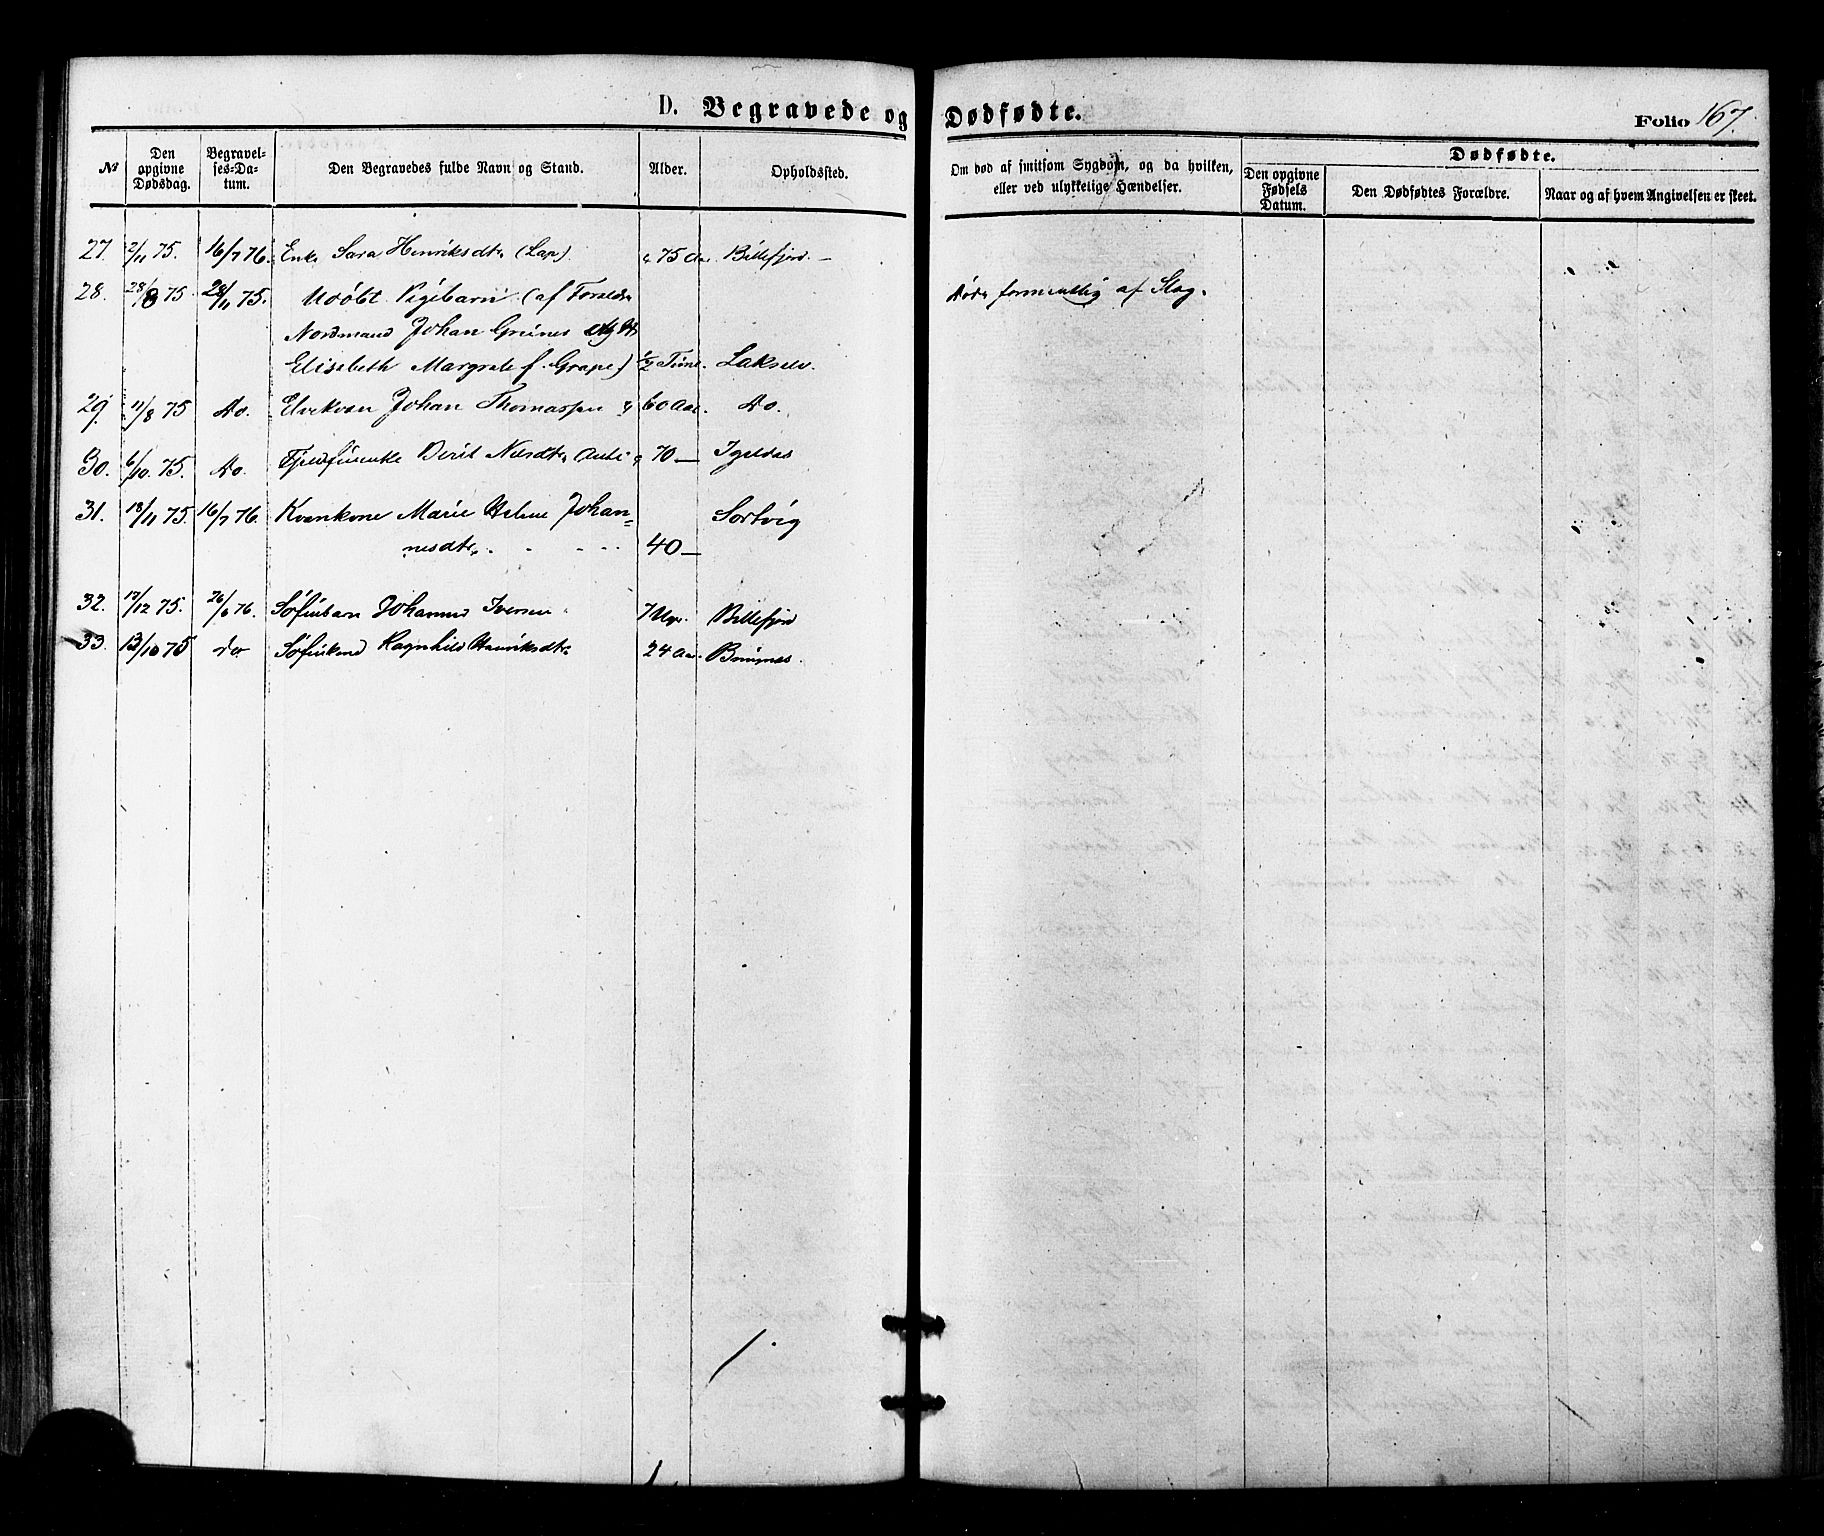 D. Begravede og Dødfødte.
Folio 167.
№ Den opgivne Dødsdag. Begravelses-Datum. Den Begravedes fulde Navn og Stand. Alder. Opholdssted. Om død af smitsom Sygdom, og da hvilken, eller ved ulykkelige Hændelser. Dødfødte. Den opgivne Fødsels Datum. Den Dødfødtes Forældre. Naar og af hvem Angivelsen er skeet.
27. 2/11 75. 16/7 76. Enke Sara Henriksdtr (Lap). 75 Aar Billefjord. —
28. 28/8 75. 28/11 75. Udøbt Pigebarn (af Forældre Døde formentlig af Slag.
Nordmand Johan Grünes og
Elisabeth Margrete f. Grape) 1/2 Time. Lakselv.
29. 11/8 75 Do. Elvekvæn Johan Thomassen 60 Aar. Do.
30. 6/10 75. Do. Fjeldfinenke Berit Nilsdtr 70 — Igeldas
31. 18/11 75. 16/7 76. Kvænkone Marie Helene Johan=
nesdtr. 40 — Sortvig
32. 12/12 75. 26/6 76. Søfinbarn Johannes Iversen 7 Uger. Billefjord
33. 13/10 75 do Søfinkone Ragnhild Henriksdtr 24 Aar.